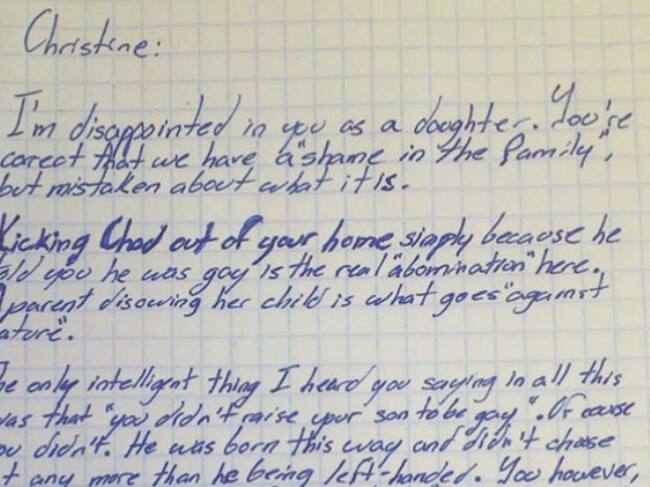 Christine:
I'm disappointed in you as a daughter. You're
corect that we have a "shame in the family",
but mistaken about what it is.
Kicking Chad out of your home simply because he
told you he was gay is the real "abomination" here.
A parent disowing her child is what goes "against
nature".
The only intelligent thing I heard you saying in all this
was that "you didn't raise your son to be gay". Of couse
you didn't. He was born this way and didn't choose
it any more than he being left-handed. You however,